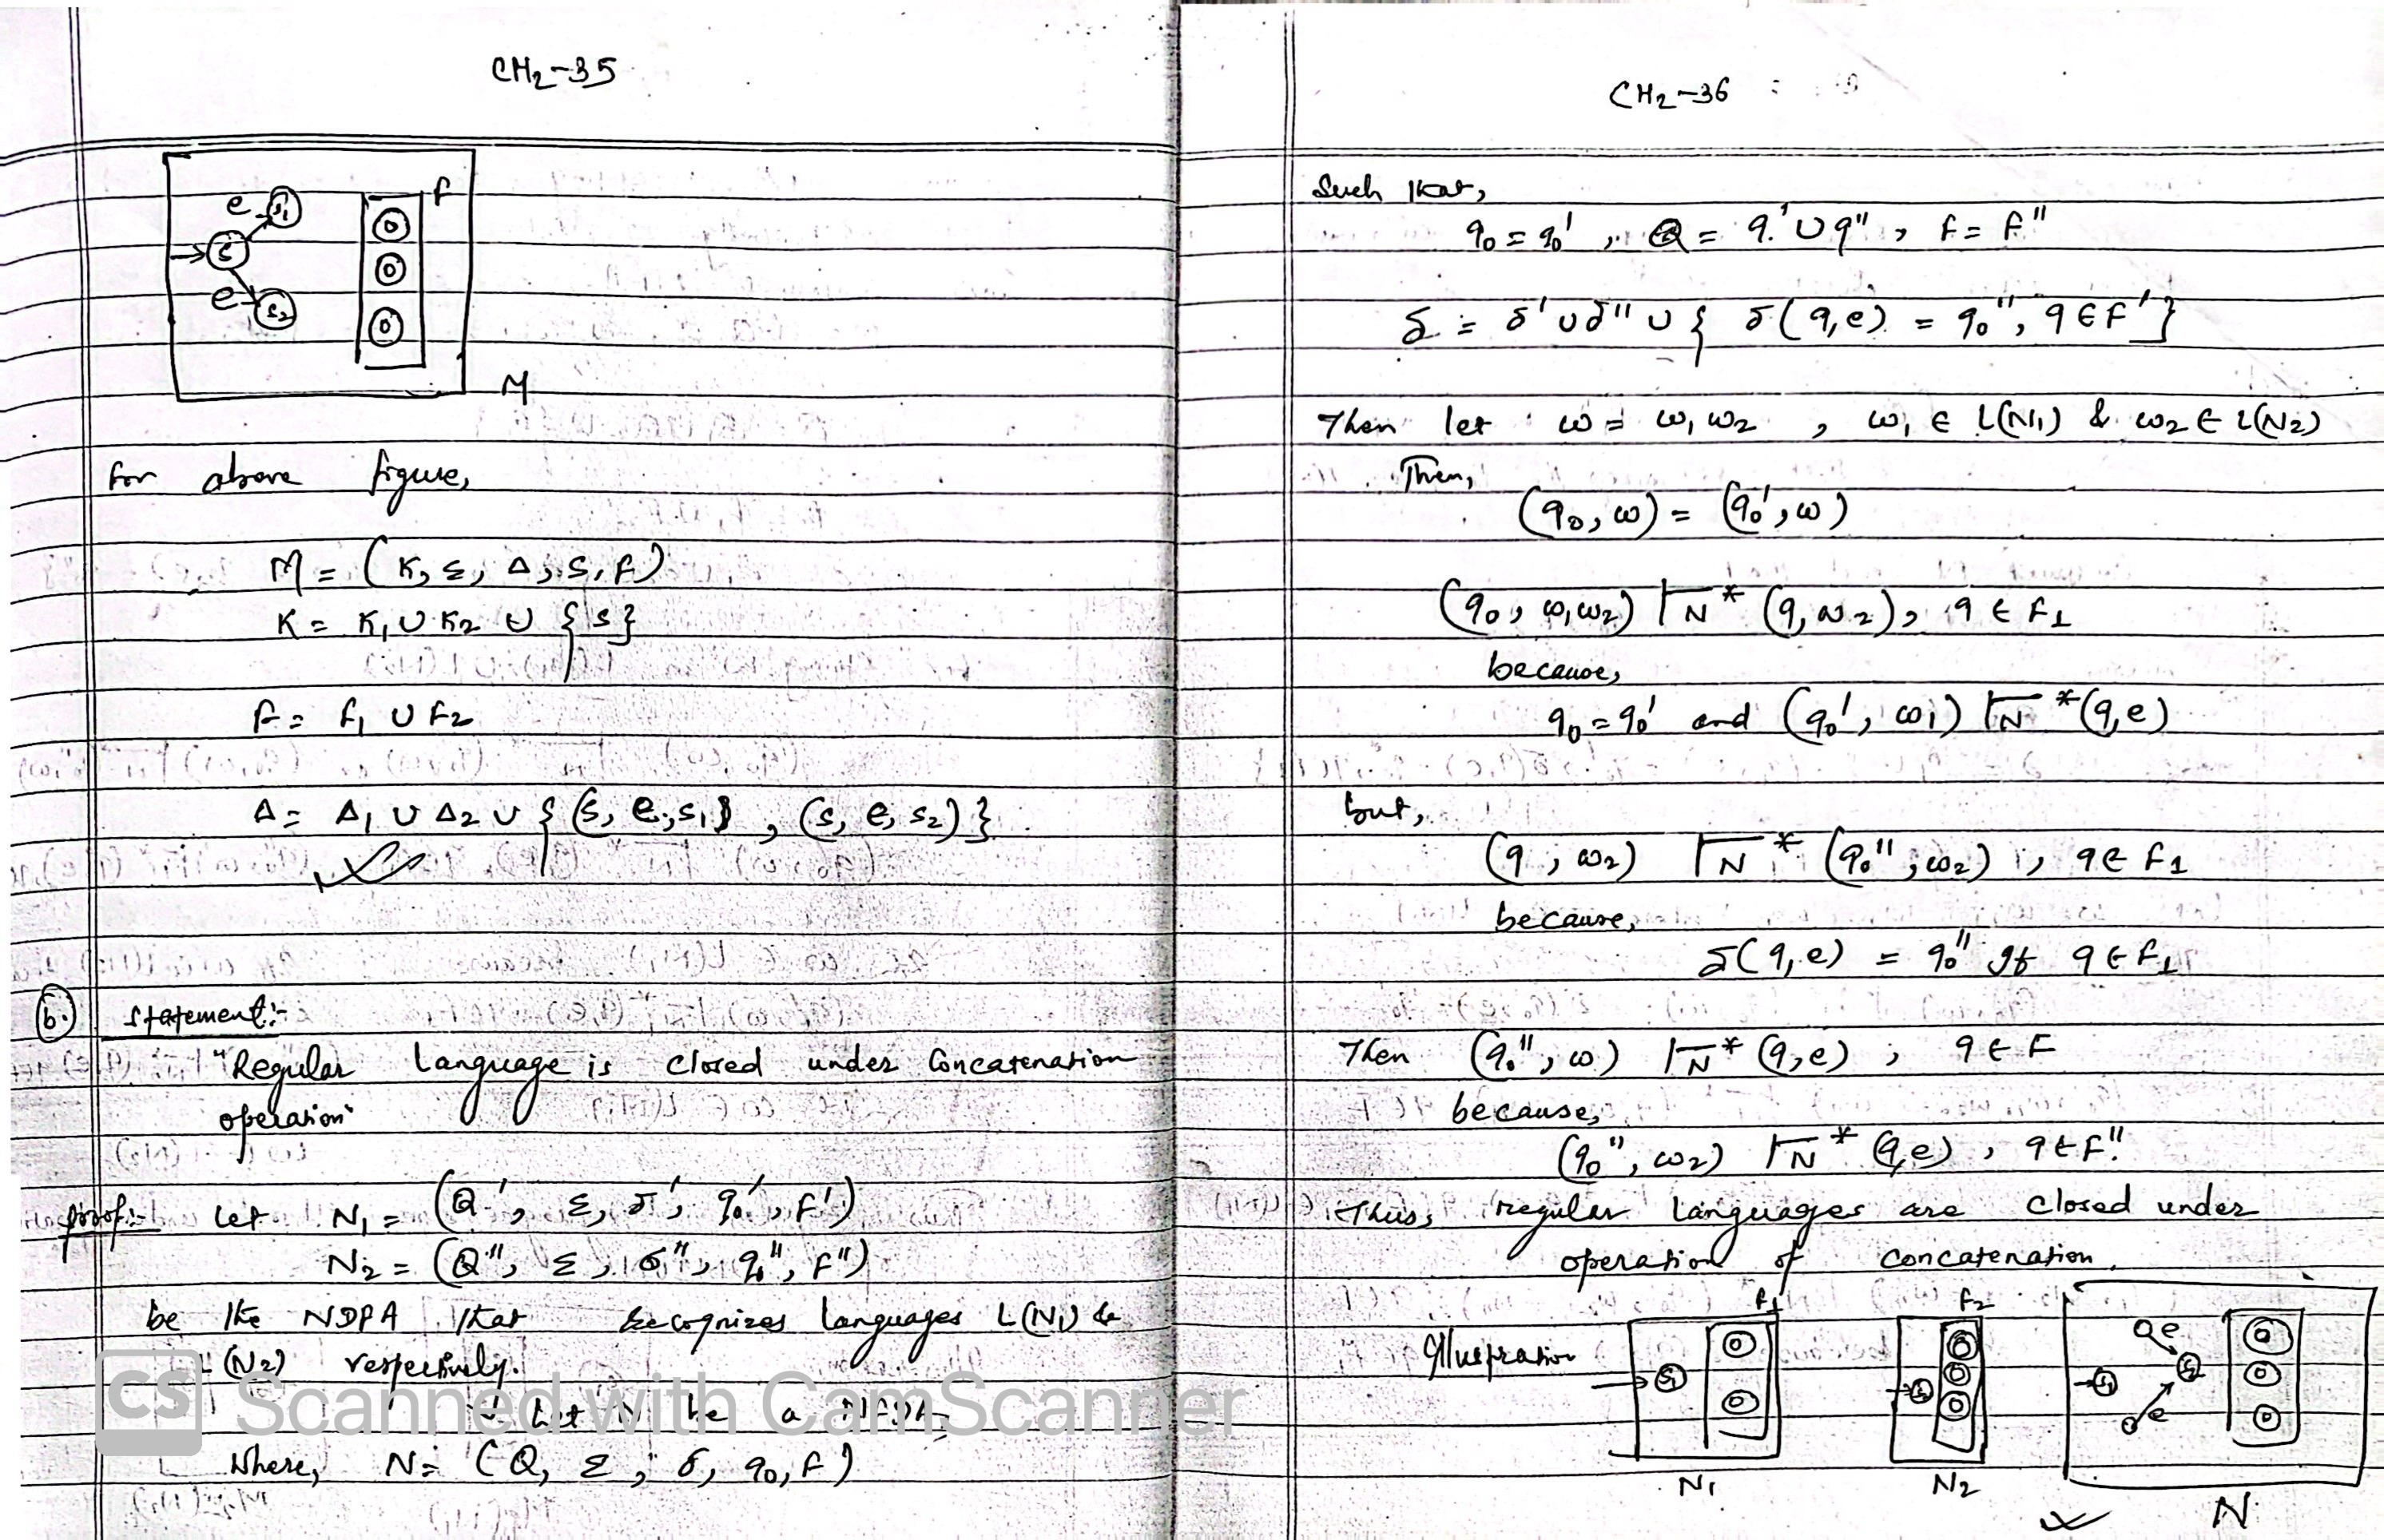 CH2-35
e s1 F
s
e s2
M
for above figure,
M = (K, Σ, Δ, s, F)
K = K1 ∪ K2 ∪ {s}
F = F1 ∪ F2
Δ = Δ1 ∪ Δ2 ∪ { (s, e, s1) , (s, e, s2) }
(b.) Statement:-
"Regular Language is closed under Concatenation
operation"
proof:- Let N1 = (Q', Σ, δ', q0', F')
N2 = (Q'', Σ, δ'', q0'', F'')
be the NDFA that recognizes languages L(N1) &
L(N2) respectively.
Let N be a NFDA,
Where, N = (Q, Σ, δ, q0, F)
CS Scanned with CamScanner
CH2-36
Such that,
q0 = q0' , Q = q' ∪ q'' , F = F''
δ = δ' ∪ δ'' ∪ { δ(q,e) = q0'', q ∈ F' }
Then let w = w1 w2 , w1 ∈ L(N1) & w2 ∈ L(N2)
Then,
(q0, w) = (q0', w)
(q0, w1w2) |N* (q, w2), q ∈ F1
because,
q0 = q0' and (q0', w1) |N* (q,e)
but,
(q, w2) |N* (q0'', w2) , q ∈ F1
because,
δ(q,e) = q0'' If q ∈ F1
Then (q0'', w) |N* (q,e) , q ∈ F
because,
(q0'', w2) |N* (q,e) , q ∈ F''
Thus, regular languages are closed under
operation of concatenation.
Illustration
F1 F2
s1 s2 s1 e s2 e
N1 N2 N